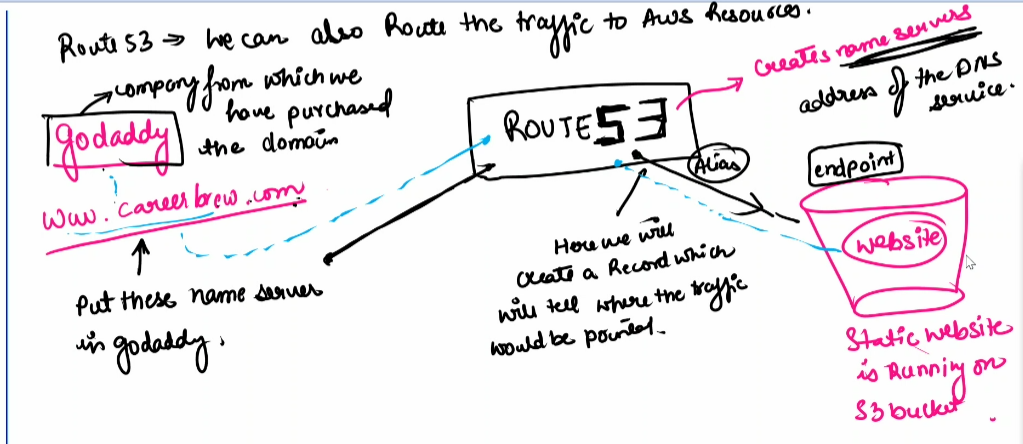 Route 53 → we can also Route the traffic to Aws Resources.
company from which we
have purchased
the domain
godaddy
www.careerbrew.com
Put these name server
in godaddy.
ROUTE 53
Creates name servers
address of the DNS
service.
Alias
Here we will
create a Record which
will tell where the traffic
would be pointed.
endpoint
website
Static website
is Running on
S3 bucket.